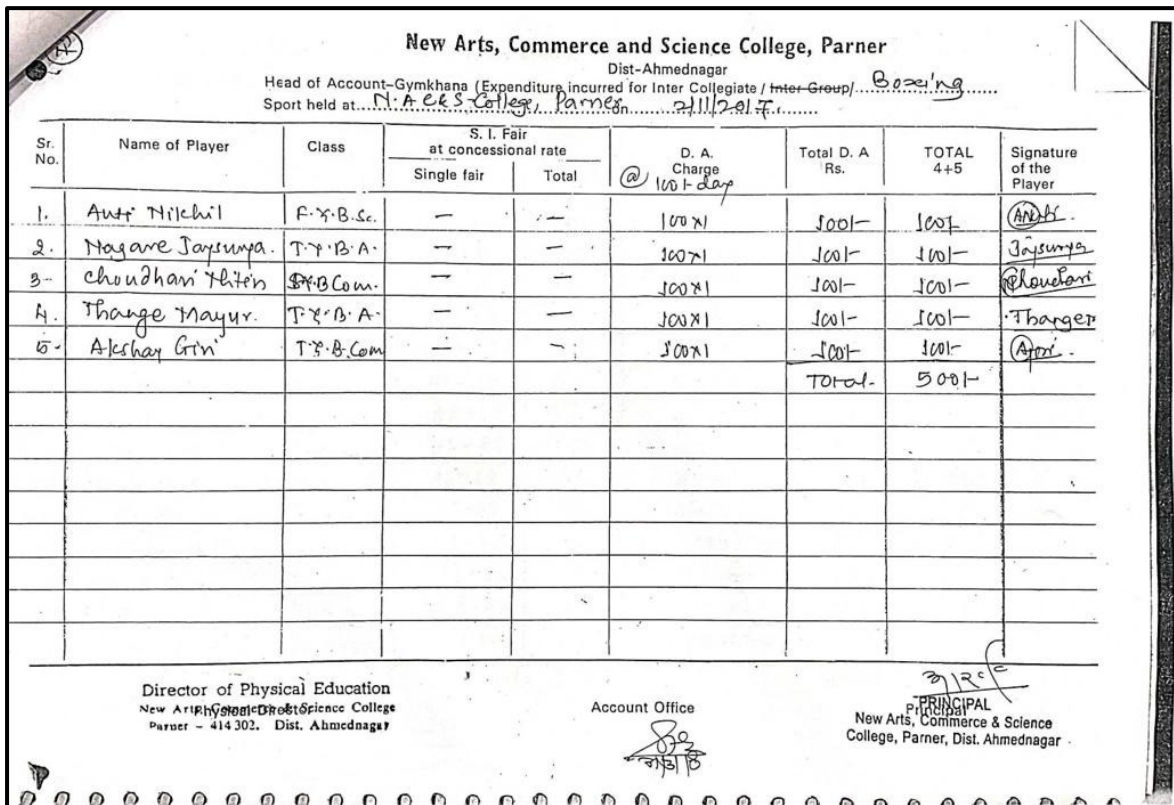 New Arts, Commerce and Science College, Parner
Dist-Ahmednagar
Head of Account-Gymkhana (Expenditure incurred for Inter Collegiate / Inter Group/... Boxing
Sport held at... N.A.C&S College, Parner on 2/11/2017.
Sr. No. Name of Player Class S. I. Fair at concessional rate D. A. Charge @ 100/- day Total D. A Rs. TOTAL 4+5 Signature of the Player
Single fair Total
1. Auti Nikhil F.Y.B.Sc. — — 100x1 100/- 100/-
2. Nagare Jaysurya. T.Y.B.A. — — 100x1 100/- 100/- Jaysurya
3- Choudhari Hiten S.Y.B.Com. — — 100x1 100/- 100/- Choudhari
4. Thange Mayur. T.Y.B.A. — — 100x1 100/- 100/- Thange
5- Akshay Giri T.Y.B.Com — — 100x1 100/- 100/-
Total- 500/-
Director of Physical Education
Physical Director
New Arts, Commerce & Science College
Parner - 414 302. Dist. Ahmednagar
Account Office
Principal
PRINCIPAL
New Arts, Commerce & Science
College, Parner, Dist. Ahmednagar